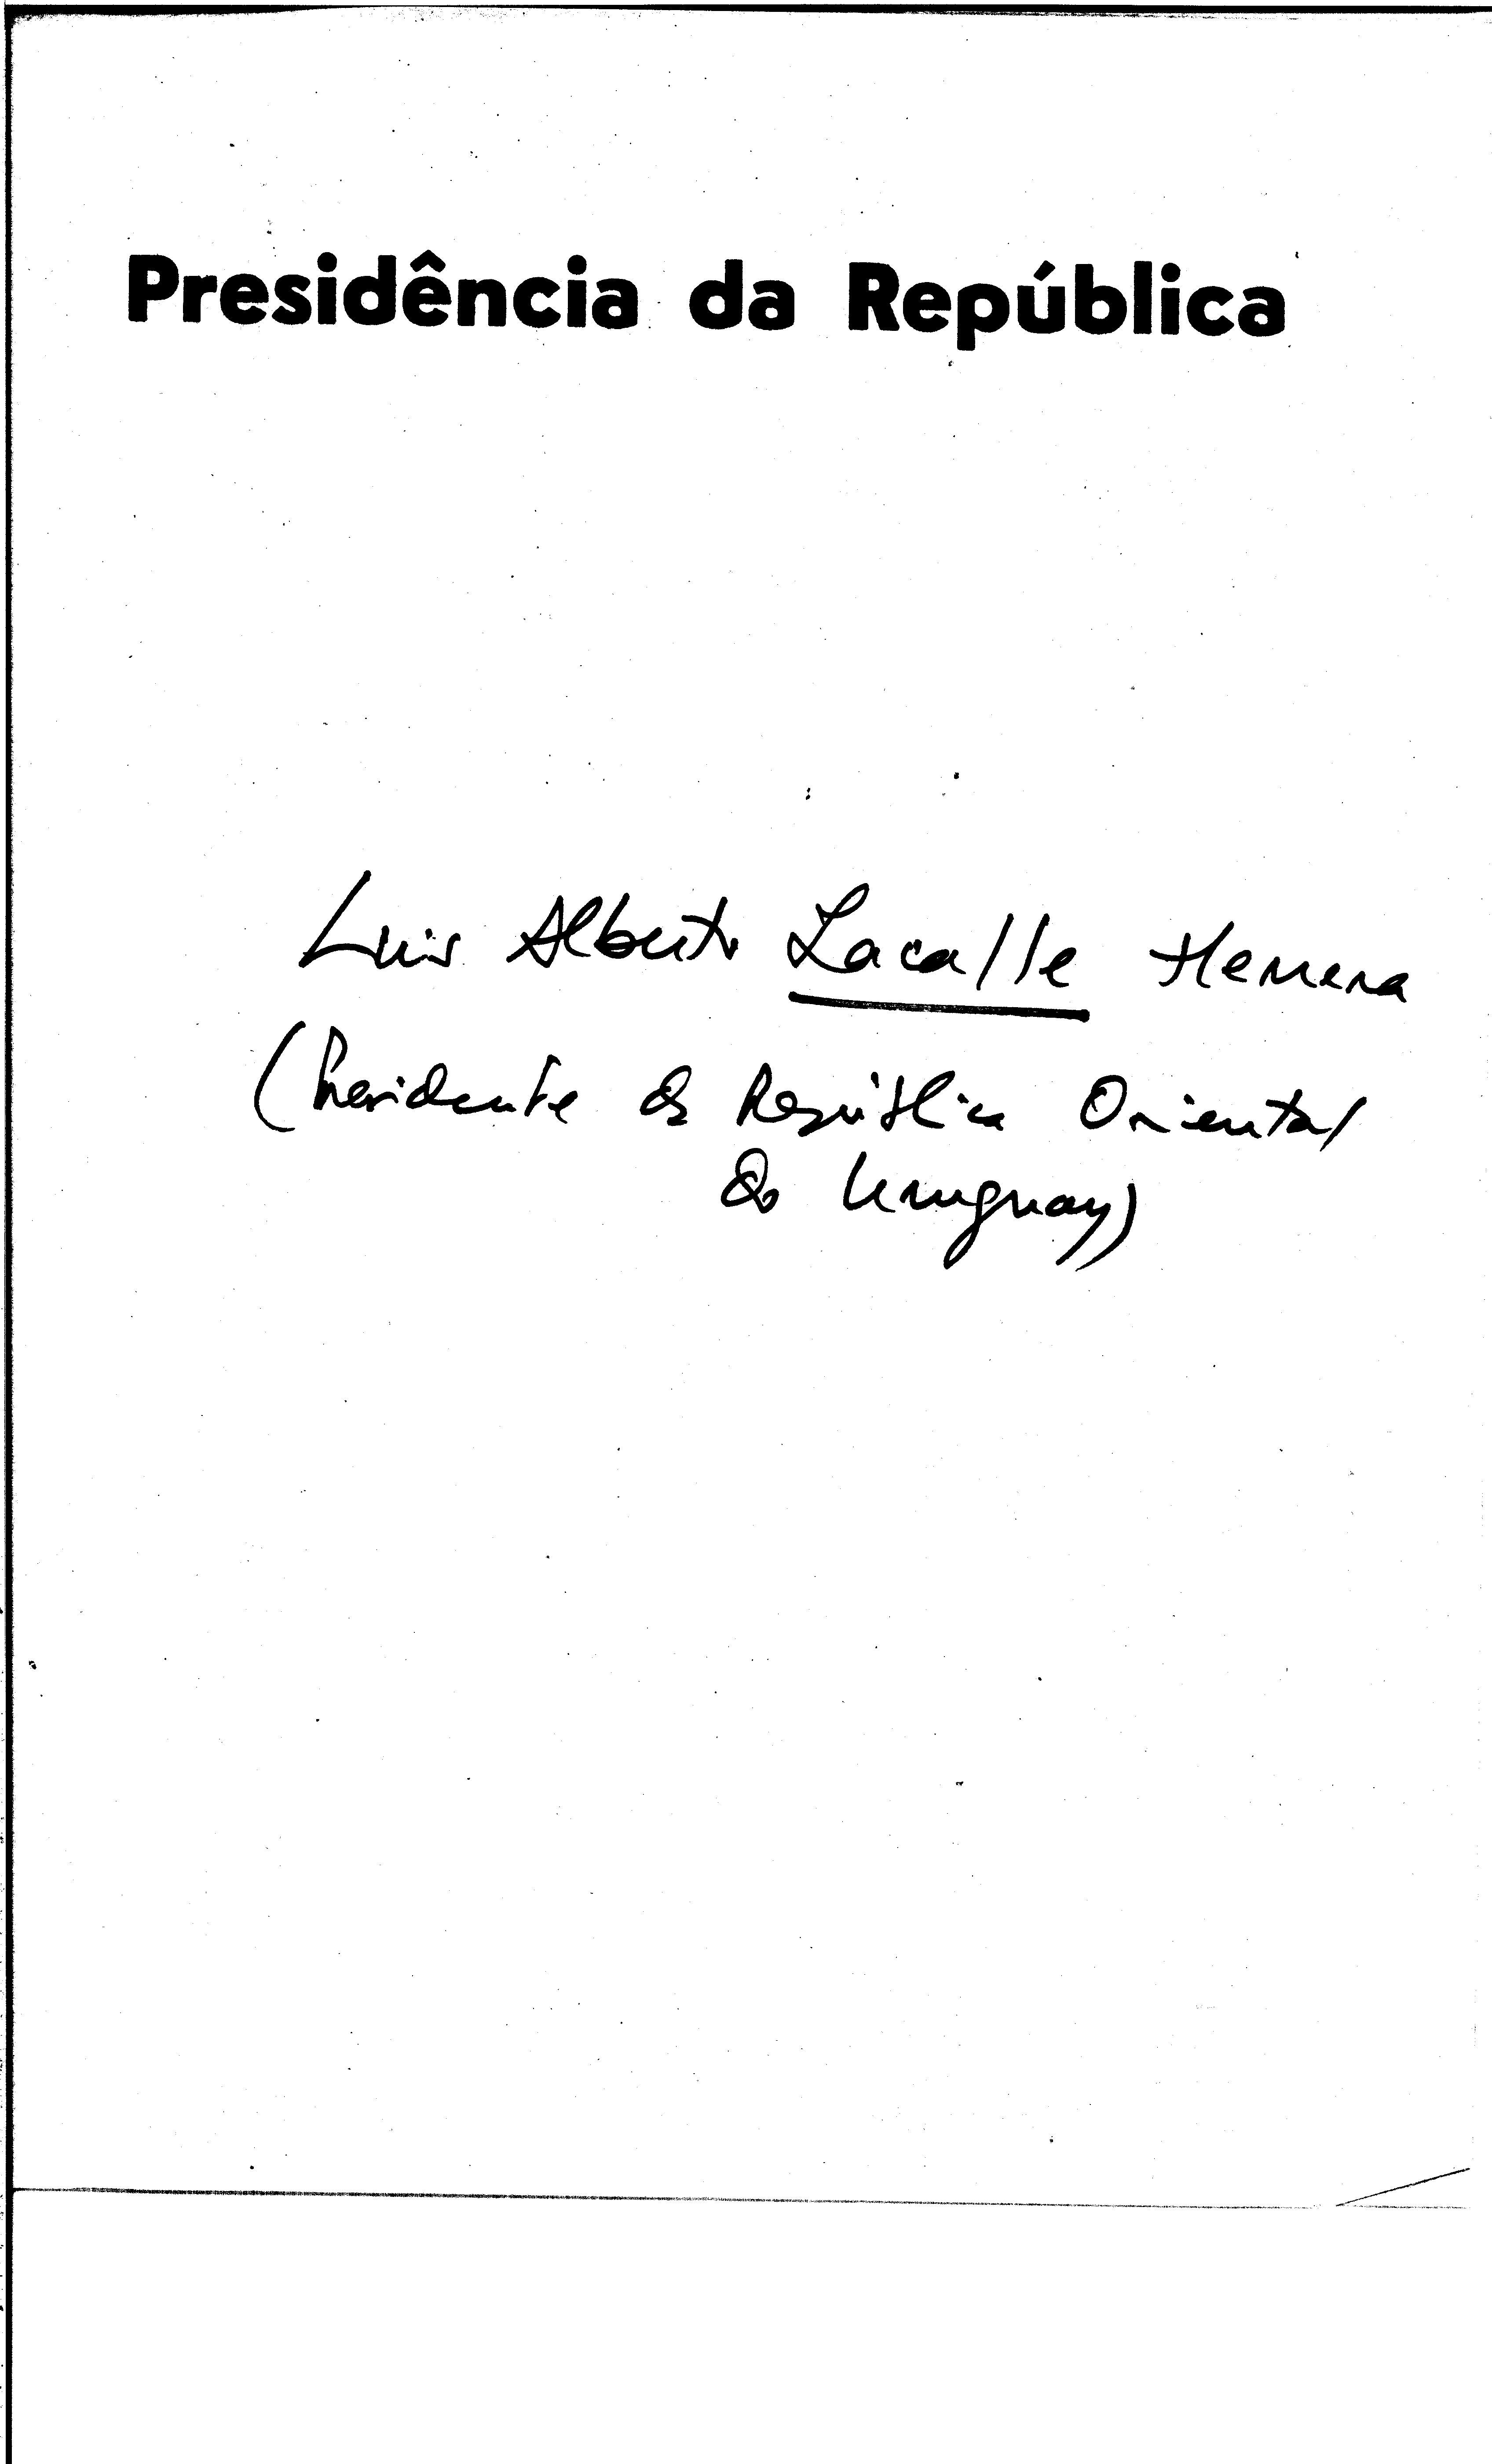 Presidência da República
Luis Alberto Lacalle Herrera
(Presidente da República Oriental
do Uruguay)